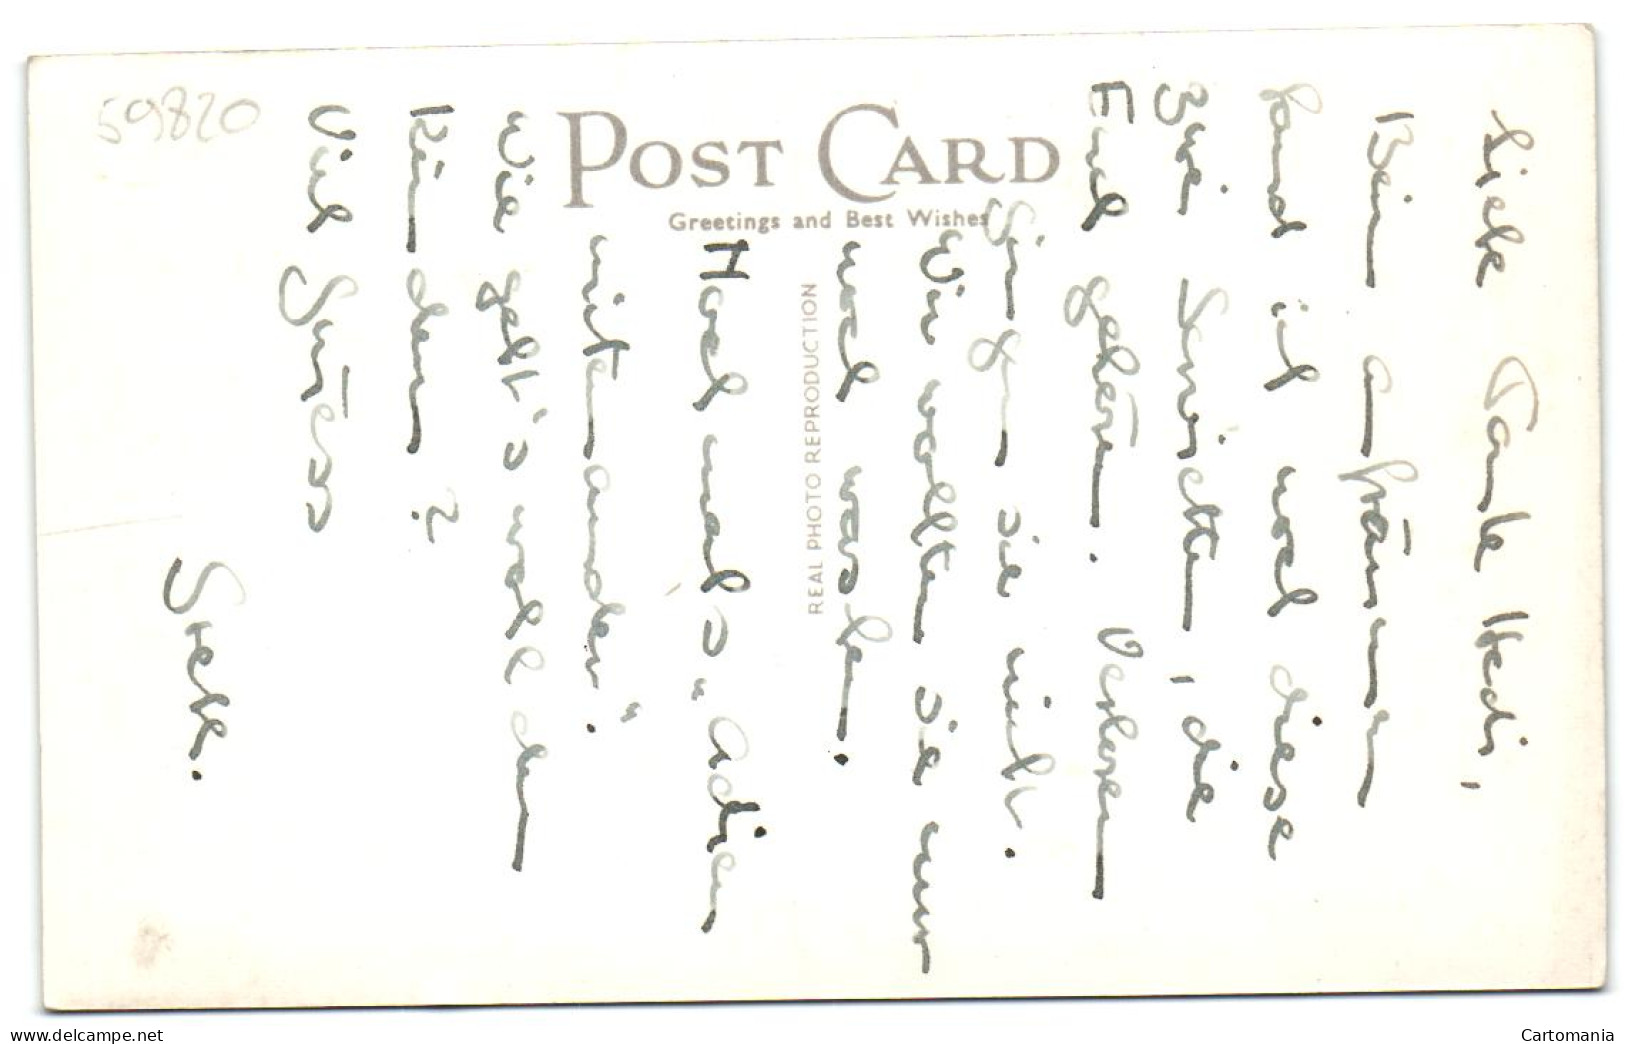 59820
POST CARD
Greetings and Best Wishes
REAL PHOTO REPRODUCTION
Liebe Tante Hedi,
Beim aufräumen
fand ich noch diese
zwei Servietten, die
Euch gehören. Verloren
gingen sie nicht.
Wir wollten sie nur
noch waschen.
Nochmals "Adieu
mitenander".
Wie geht's wohl den
Kindern?
Viel Grüsse
www.delcampe.net
Cartomania